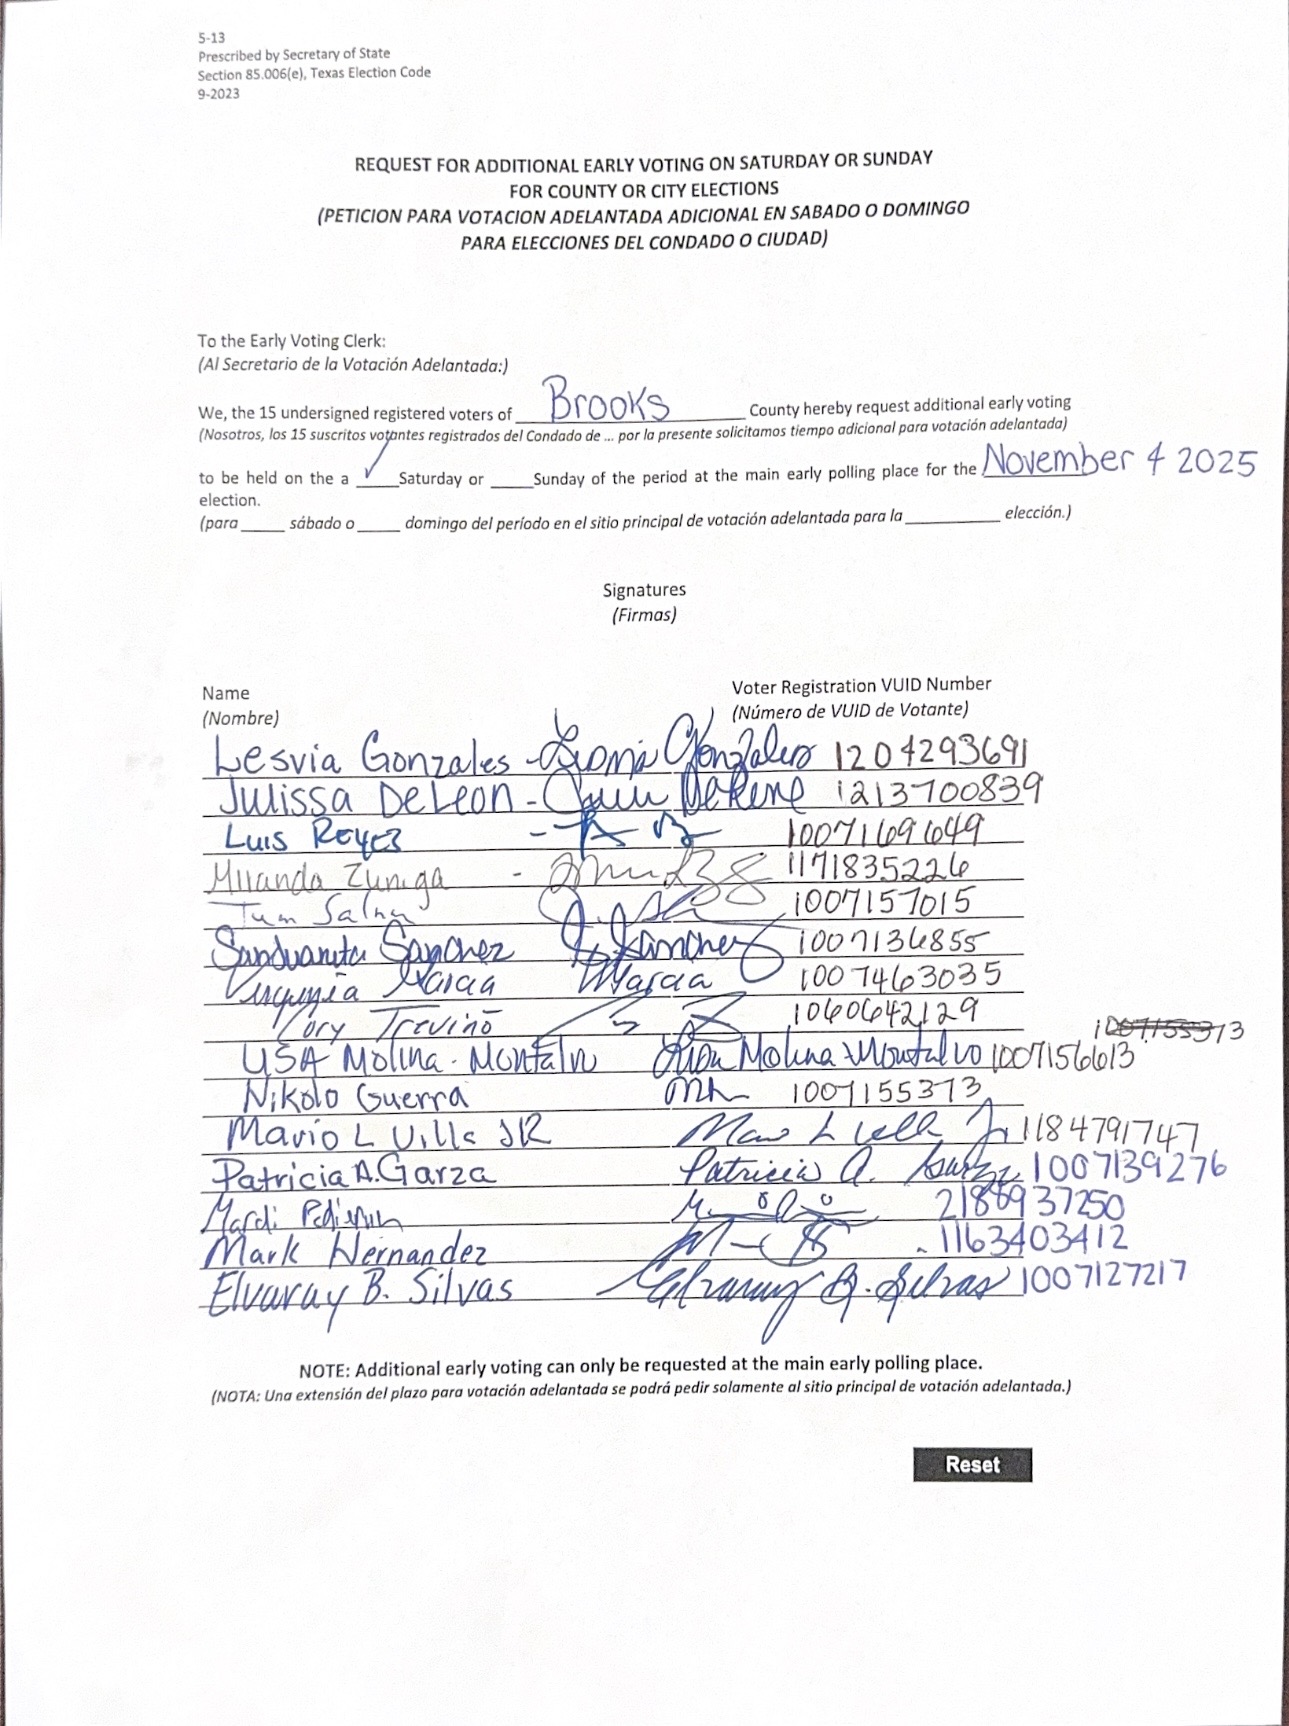 5-13
Prescribed by Secretary of State
Section 85.006(e), Texas Election Code
9-2023
REQUEST FOR ADDITIONAL EARLY VOTING ON SATURDAY OR SUNDAY
FOR COUNTY OR CITY ELECTIONS
(PETICION PARA VOTACION ADELANTADA ADICIONAL EN SABADO O DOMINGO
PARA ELECCIONES DEL CONDADO O CIUDAD)
To the Early Voting Clerk:
(Al Secretario de la Votación Adelantada:)
We, the 15 undersigned registered voters of Brooks County hereby request additional early voting
(Nosotros, los 15 suscritos votantes registrados del Condado de ... por la presente solicitamos tiempo adicional para votación adelantada)
to be held on the a ✓ Saturday or _____ Sunday of the period at the main early polling place for the November 4 2025
election.
(para _____ sábado o _____ domingo del período en el sitio principal de votación adelantada para la __________ elección.)
Signatures
(Firmas)
Name Voter Registration VUID Number
(Nombre) (Número de VUID de Votante)
Lesvia Gonzales - Gonzales 1204293691
Julissa DeLeon - 1213700839
Luis Reyes - 1007169649
Miranda Zuniga - 1171835226
1007157015
Sanjuanita Sanchez Sanchez 1007136855
Garcia Garcia 1007463035
Rory Treviño 1060642129
Molina-Montalvo Molina Montalvo 1007156613 1007155373
Nikolo Guerra 1007155373
Mario L Villa JR Jr 1184791747
Patricia A. Garza Patricia A. Garza 1007139276
2188937250
Mark Hernandez 1163403412
Elvaray B. Silvas Elvaray B. Silvas 1007127217
NOTE: Additional early voting can only be requested at the main early polling place.
(NOTA: Una extensión del plazo para votación adelantada se podrá pedir solamente al sitio principal de votación adelantada.)
Reset